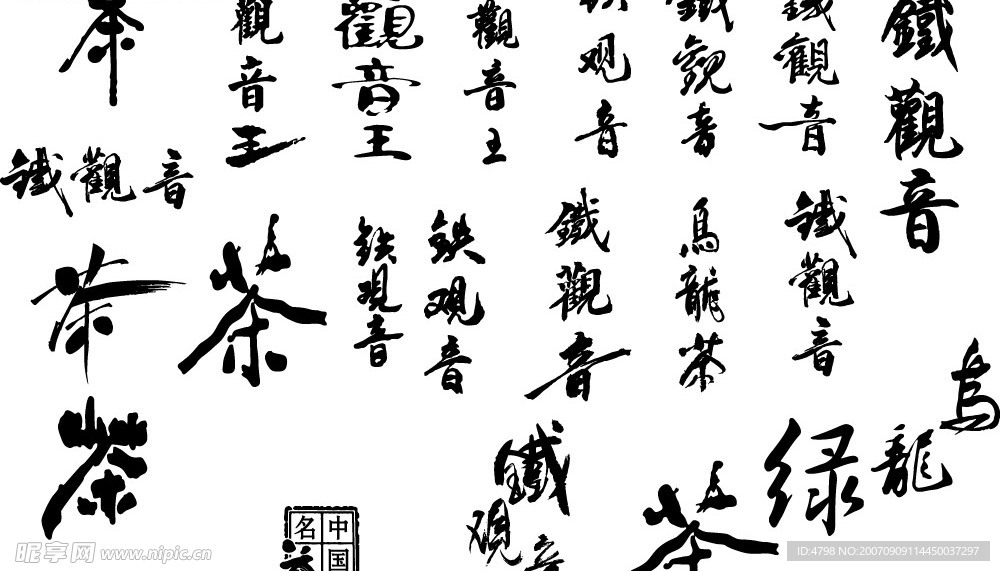 茶
觀音王
觀音王
觀音王
铁观音
鐵觀音
鐵觀音
鐵觀音
鐵觀音
茶
茶
铁观音
铁观音
鐵觀音
烏龍茶
鐵觀音
烏龍
茶
鐵觀音
茶
绿
中国
名茶
昵享网 www.nipic.cn
ID:4798 NO:20070909114450037297